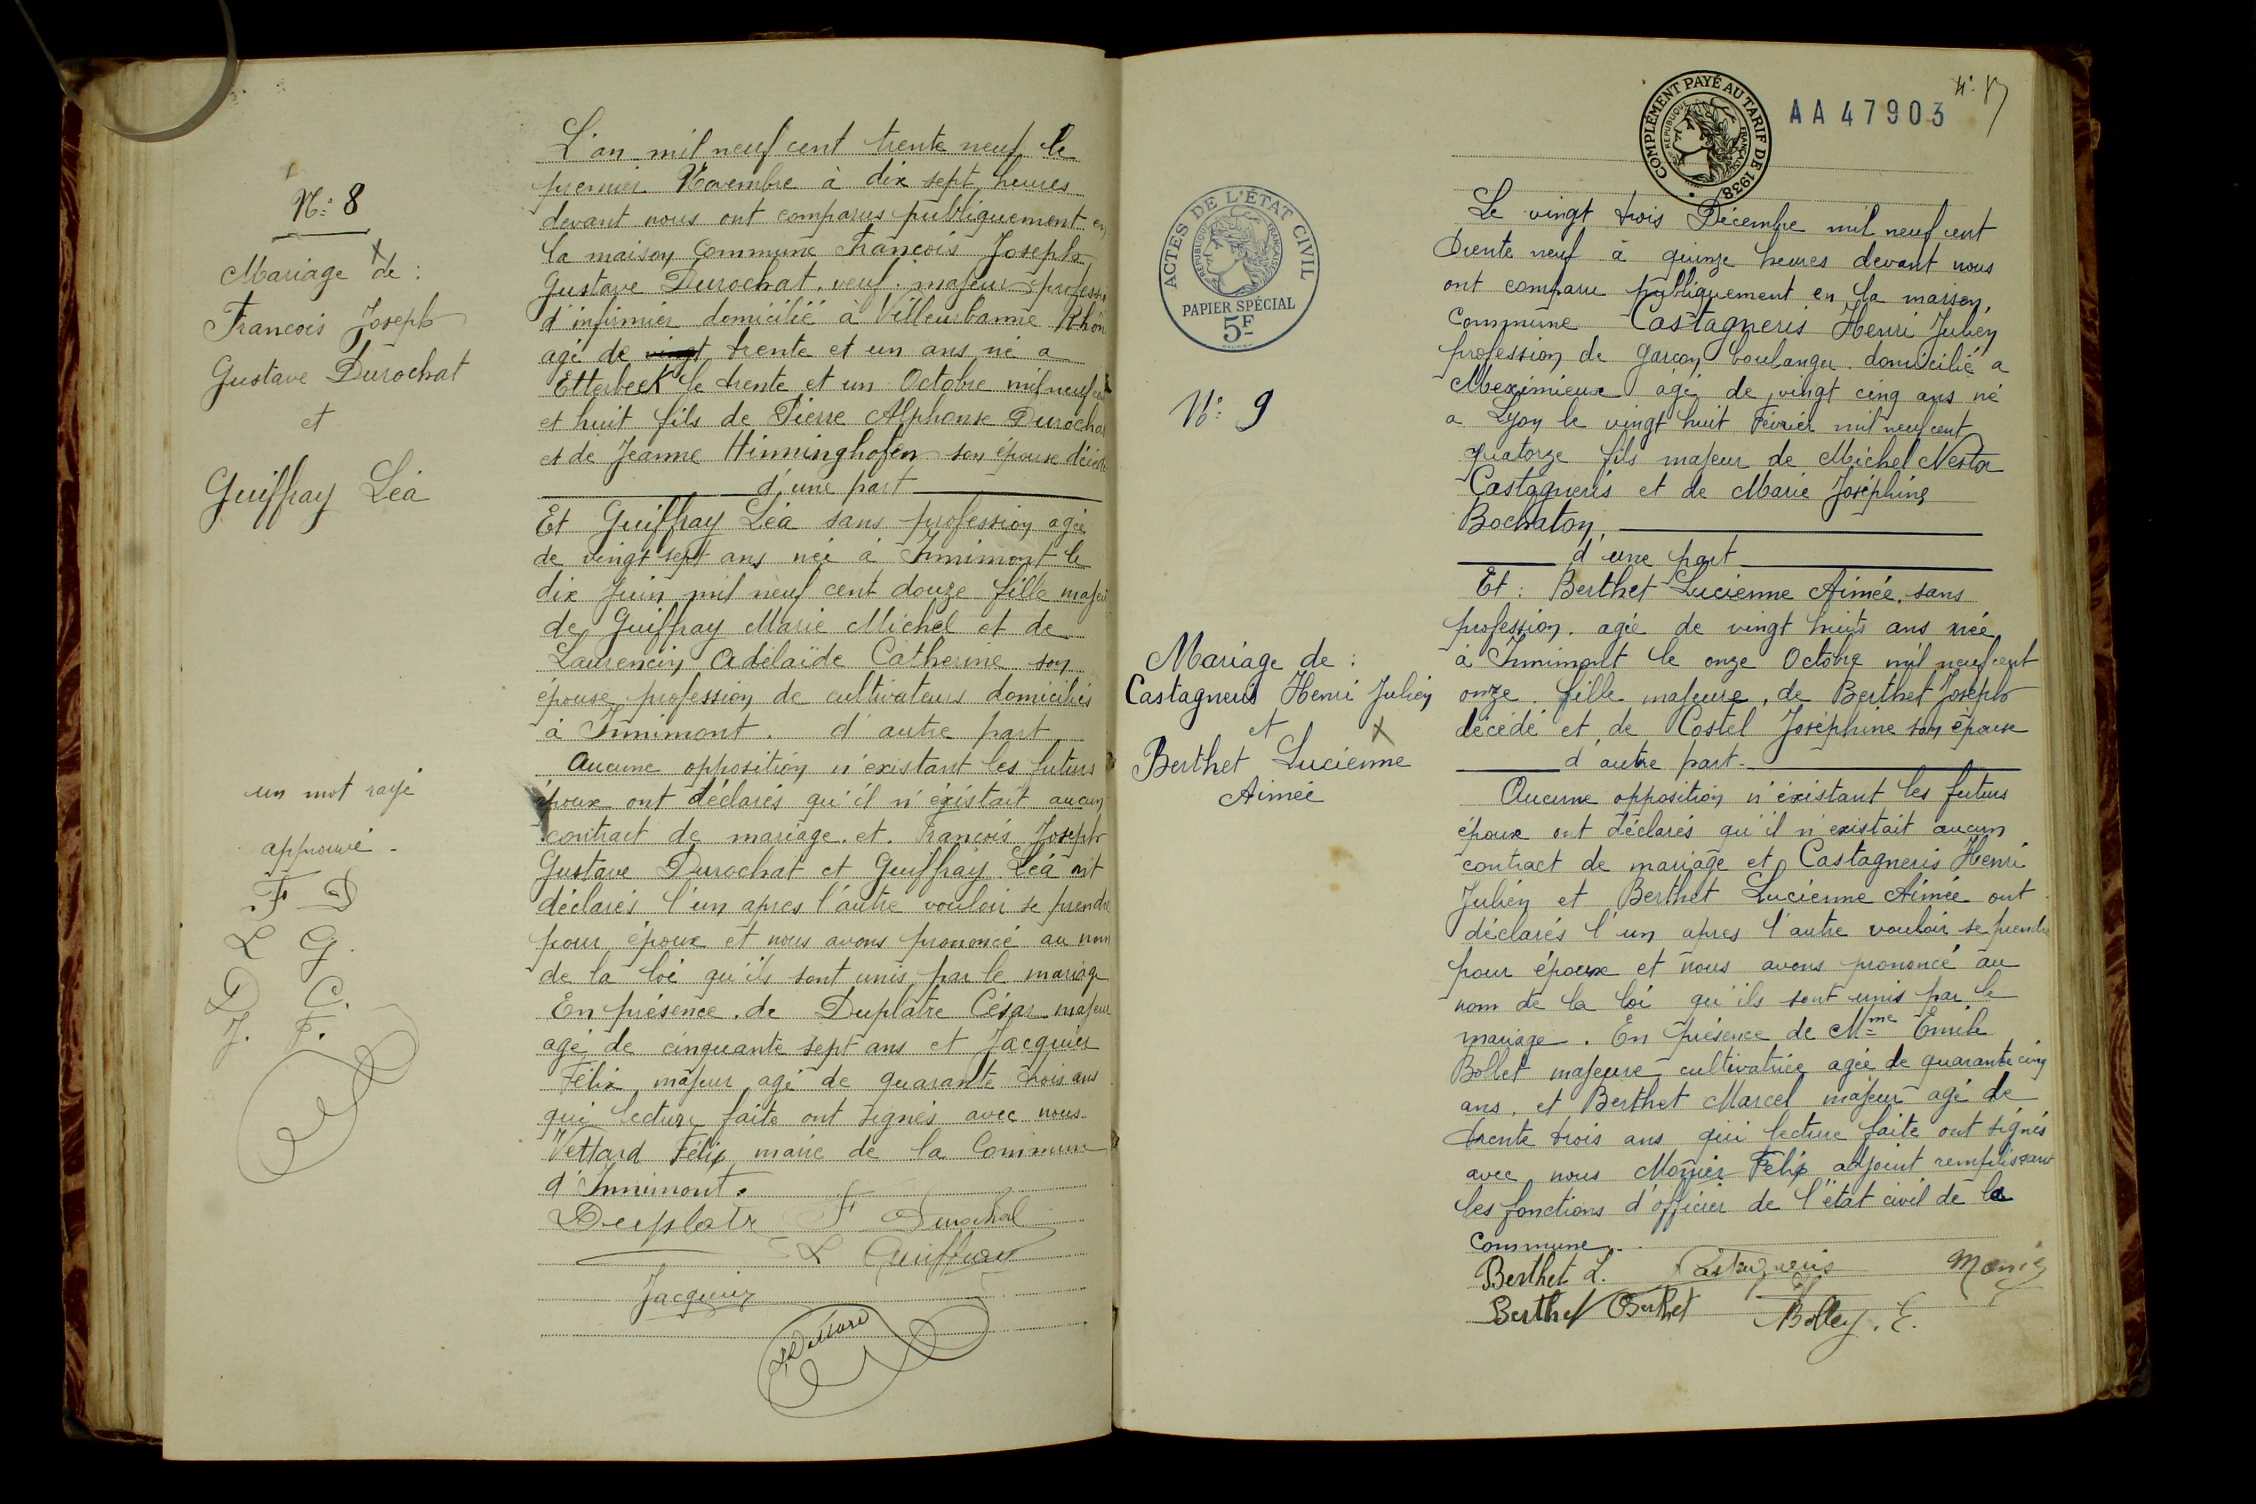 N° 8
Mariage de :
Francois Joseph
Gustave Durochat
et
Guiffray Léa
un mot rayé
approuvé -
F D
L G.
D C.
J. F.
L'an mil neuf cent trente neuf le
premier Novembre à dix sept heures
devant nous ont comparus publiquement en
la maison Commune Francois Joseph
Gustave Durochat. veuf. majeur profession
d'infirmier domicilié à Villeurbanne Rhône
agé de trente et un ans né a
Etterbeek le trente et un Octobre mil neuf cent
et huit fils de Pierre Alphonse Durochat
et de Jeanne Hinninghofen son épouse décédé
d'une part
Et Guiffray Léa sans profession agée
de vingt sept ans née à Innimont le
dix Juin mil neuf cent douze fille majeure
de Guiffray Marie Michel et de
Laurencin Adélaïde Catherine son
épouse profession de cultivateurs domiciliés
à Innimont. d'autre part
Aucune opposition n'existant les futurs
époux ont déclarés qu'il n'éxistait aucun
contract de mariage. et. Francois Joseph
Gustave Durochat et Guiffray Léa ont
déclarés l'un apres l'autre vouloir se prendre
pour époux et nous avons prononcé au nom
de la loi qu'ils sont unis par le mariage
En présence. de Duplatre César majeur
agé de cinquante sept ans et Jacquier
Félix majeur agé de quarante trois ans
qui lecture faite ont signés avec nous
Vettard Félix maire de la Commune
d'Innimont.
Duplatr F Durochat
L Guiffray
Jacquier
Vettard
COMPLÉMENT PAYÉ AU TARIF DE 1938
RÉPUBLIQUE FRANÇAISE
AA 47903
ACTES DE L'ÉTAT CIVIL
RÉPUBLIQUE FRANÇAISE
PAPIER SPÉCIAL
5F
N° 9
Mariage de :
Castagneris Henri Julien
et
Berthet Lucienne
Aimée
Le vingt trois Décembre mil neuf cent
trente neuf à quinze heures devant nous
ont comparu publiquement en la maison
Commune Castagneris Henri Julien
profession de garçon boulanger. domicilié a
Meximieux agé de vingt cinq ans né
a Lyon le vingt huit Février mil neuf cent
quatorze fils majeur de Michel Nestor
Castagneris et de Marie Joséphine
Bochaton,
d'une part
Et : Berthet Lucienne Aimée. sans
profession. agée de vingt huits ans née
à Innimont le onze Octobre mil neuf cent
onze. fille majeure. de Berthet Joseph
décédé et de Costel Joséphine son épouse
d'autre part.
Aucune opposition n'éxistant les futurs
époux ont déclarés qu'il n'existait aucun
contract de mariage et Castagneris Henri
Julien et Berthet Lucienne Aimée ont
déclarés l'un apres l'autre vouloir se prendre
pour époux et nous avons prononcé au
nom de la loi qu'ils sont unis par le
mariage. En présence de Mme Emile
Bollet majeure cultivatrice agée de quarante cinq
ans. et Berthet Marcel majeur agé de
trente trois ans qui lecture faite ont signés
avec nous Monier Félix adjoint remplissant
les fonctions d'officier de l'état civil de la
Commune.
Berthet L. Castagneris Monier
Berthet Berthet Bolley. E.